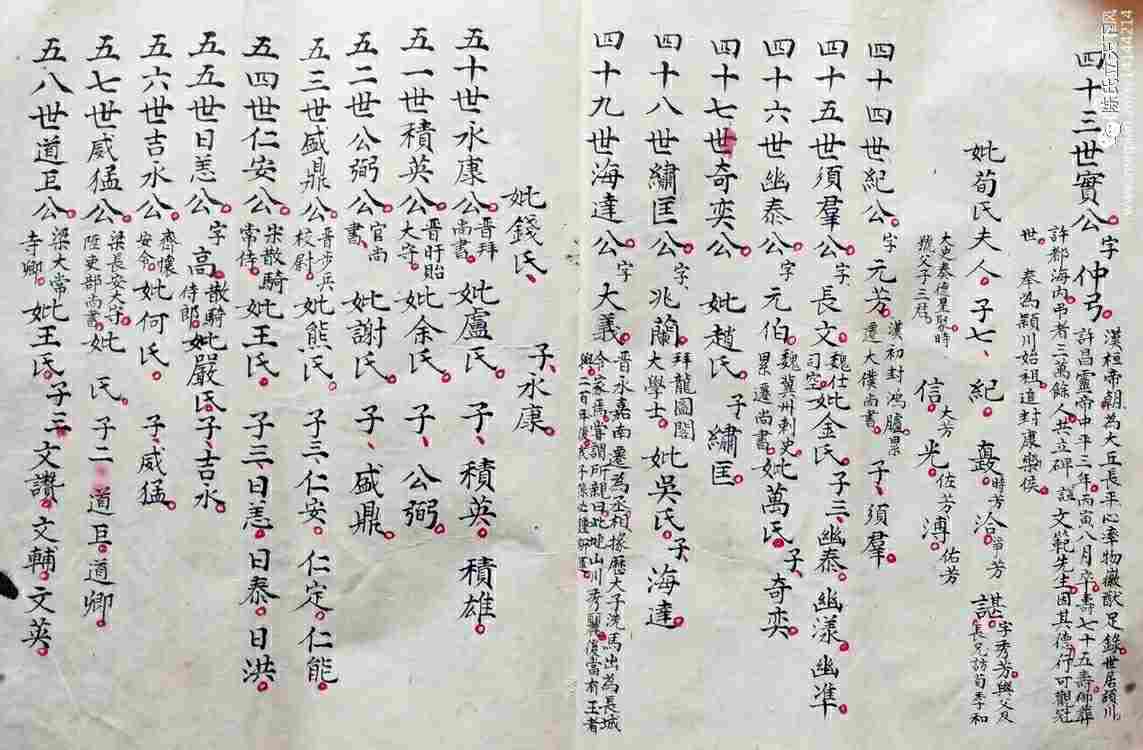 四十三世實公字仲弓漢桓帝朝為大丘長平心率物徽猷足錄世居潁川
許昌靈帝中平三年丙寅八月卒壽七十五壽御葬
許都海內弔者三萬餘人共立碑謚文範先生因其德行可觀冠
世奉為潁川始祖追封康樂侯
妣荀氏夫人子七紀諶時芳洽 芳諶其字秀芳與父及
長兄訪荀季和
大史奏德星聚時
號父子三君
信大芳光佐芳溥佑芳
四十四世紀公字元芳漢初封鴻臚累
遷大僕尚書子須羣
四十五世須羣公字長文魏仕
司空妣金氏子三幽泰幽漾幽準
四十六世幽泰公字元伯魏冀州刺史
累遷尚書妣萬氏子奇奕
四十七世奇奕公妣趙氏子繡匡
四十八世繡匡公字兆蘭拜龍圖閣
大學士妣吳氏子海達
四十九世海達公字大義晉永嘉南遷為丞相掾歷大子洗馬出為長城
令家焉嘗謂所親曰此地山川秀麗後當有王者
興二百年後
妣錢氏子永康
五十世永康公晉拜
尚書妣盧氏子積英積雄
五一世積英公晉盱眙
大守妣余氏子公弼
五二世公弼公官尚
書妣謝氏子盛鼎
五三世盛鼎公晉步兵
校尉妣熊氏子三仁安仁定仁能
五四世仁安公宋散騎
常侍妣王氏子三日恙日泰日洪
五五世日恙公字高散騎
侍郎妣嚴氏子吉永
五六世吉永公齊懷
安令妣何氏子威猛
五七世威猛公梁長安大守
陞吏部尚書妣 氏子二道臣道卿
五八世道臣公梁大常
寺卿妣王氏子三文讚文輔文英